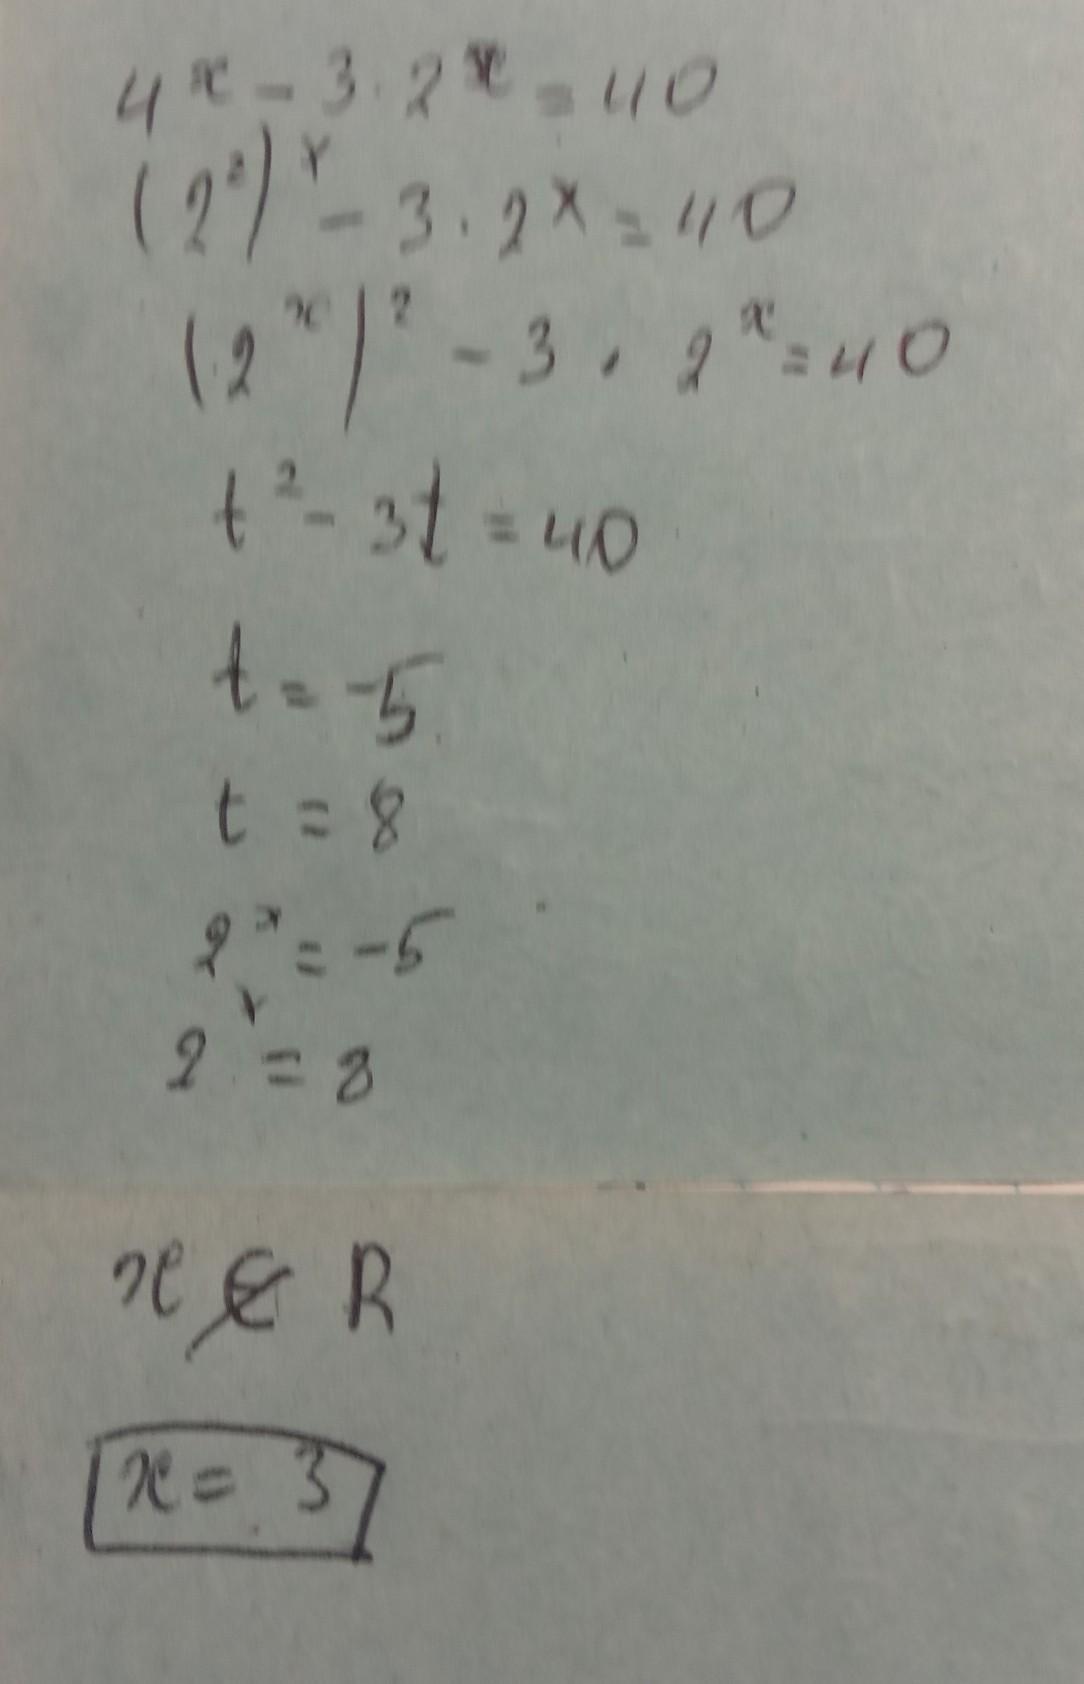 4ˣ - 3 · 2ˣ = 40
(2²)ˣ - 3 · 2ˣ = 40
(2ˣ)² - 3 · 2ˣ = 40
t² - 3t = 40
t = -5
t = 8
2ˣ = -5
2ˣ = 8
x ∉ R
x = 3